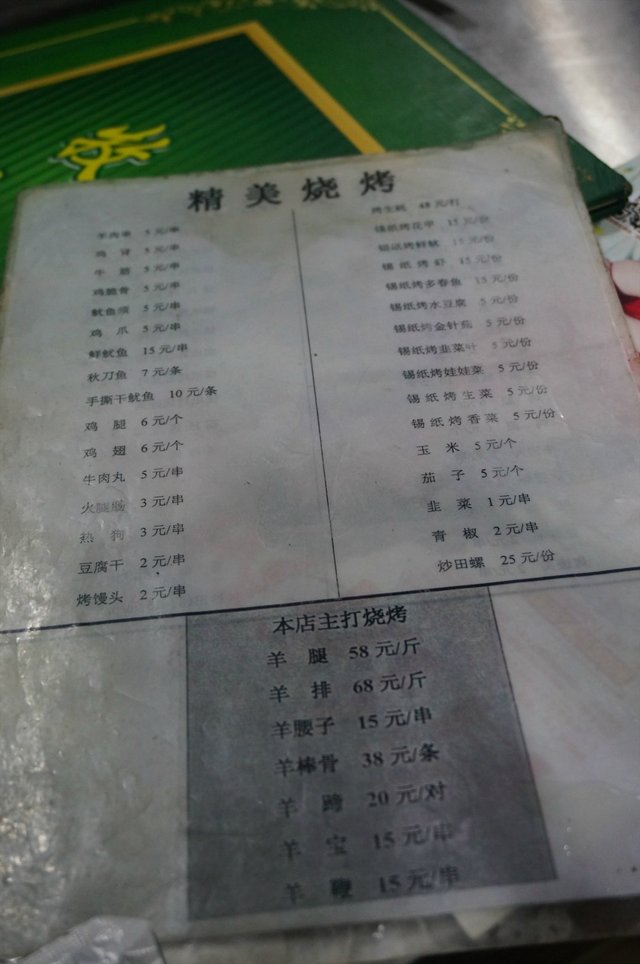 精美烧烤
羊肉串 5元/串
鸡肾 5元/串
牛筋 5元/串
鸡脆骨 5元/串
鱿鱼须 5元/串
鸡爪 5元/串
鲜鱿鱼 15元/串
秋刀鱼 7元/条
手撕干鱿鱼 10元/条
鸡腿 6元/个
鸡翅 6元/个
牛肉丸 5元/串
火腿肠 3元/串
热狗 3元/串
豆腐干 2元/串
烤馒头 2元/串
烤生蚝 48元/打
锡纸烤花甲 15元/份
锡纸烤鲜鱿 15元/份
锡纸烤虾 15元/份
锡纸烤多春鱼 15元/份
锡纸烤水豆腐 5元/份
锡纸烤金针菇 5元/份
锡纸烤韭菜叶 5元/份
锡纸烤娃娃菜 5元/份
锡纸烤生菜 5元/份
锡纸烤香菜 5元/份
玉米 5元/个
茄子 5元/个
韭菜 1元/串
青椒 2元/串
炒田螺 25元/份
本店主打烧烤
羊腿 58元/斤
羊排 68元/斤
羊腰子 15元/串
羊棒骨 38元/条
羊蹄 20元/对
羊宝 15元/串
羊鞭 15元/串